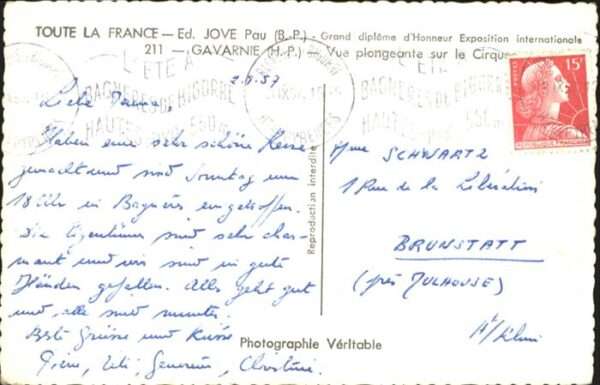 TOUTE LA FRANCE — Ed. JOVE Pau (B.-P.) - Grand diplôme d'Honneur Exposition internationale
211 — GAVARNIE (H.-P.) — Vue plongeante sur le Cirque
L'ÉTÉ A
BAGNERES-DE-BIGORRE
HAUTES-PYR. 550 m
BAGNERES DE BIGORRE
POSTES
15F
REPUBLIQUE FRANÇAISE
57
Haben eine sehr schöne Reise
gemacht und sind Sonntag um
18 Uhr in Bagnères eingetroffen.
Die Eigentümer sind sehr char-
mant und wir sind in gute
Händen gefallen. Alles geht gut
und alle sind munter.
Beste Grüsse und Küsse
Reproduction interdite
Mme SCHWARTZ
1 Rue de la Libération
BRUNSTATT
(près MULHOUSE)
Ht/Rhin
Photographie Véritable